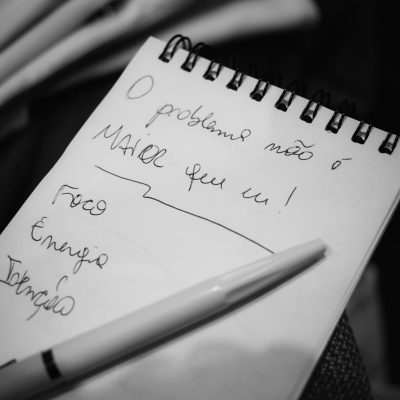 O problema não é
MAIOR que eu!
Foco
Energia
Intenção